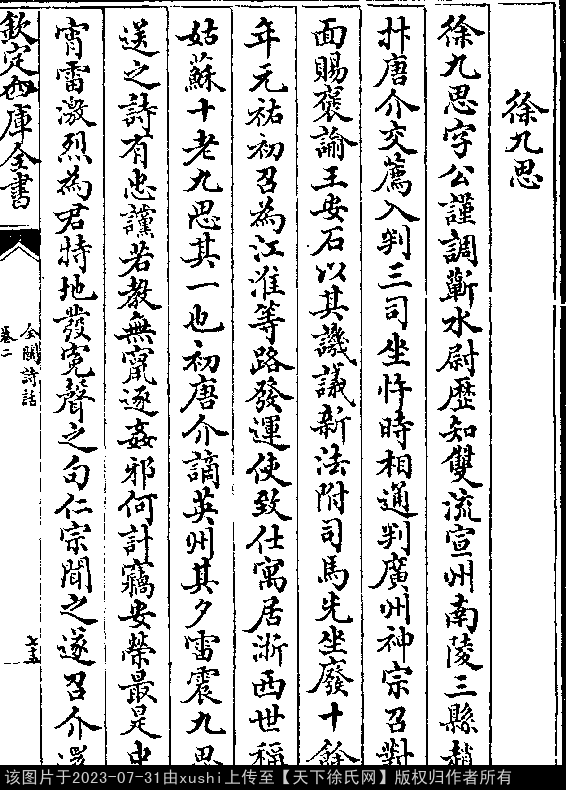 徐九思
徐九思字公謹調蘄水尉歷知雙流宣州南陵三縣趙
抃唐介交薦入判三司坐忤時相通判廣州神宗召對
面賜褒諭王安石以其譏議新法附司馬先坐廢十餘
年元祐初召為江淮等路發運使致仕寓居浙西世稱
姑蘇十老九思其一也初唐介謫英州其夕雷震九思
送之詩有忠讜若教無竄逐姦邪何計竊安榮最是中
宵雷激烈為君特地發寃聲之句仁宗聞之遂召介還
欽定四庫全書
全閩詩話
卷二
七五
该图片于2023-07-31由xushi上传至【天下徐氏网】版权归作者所有